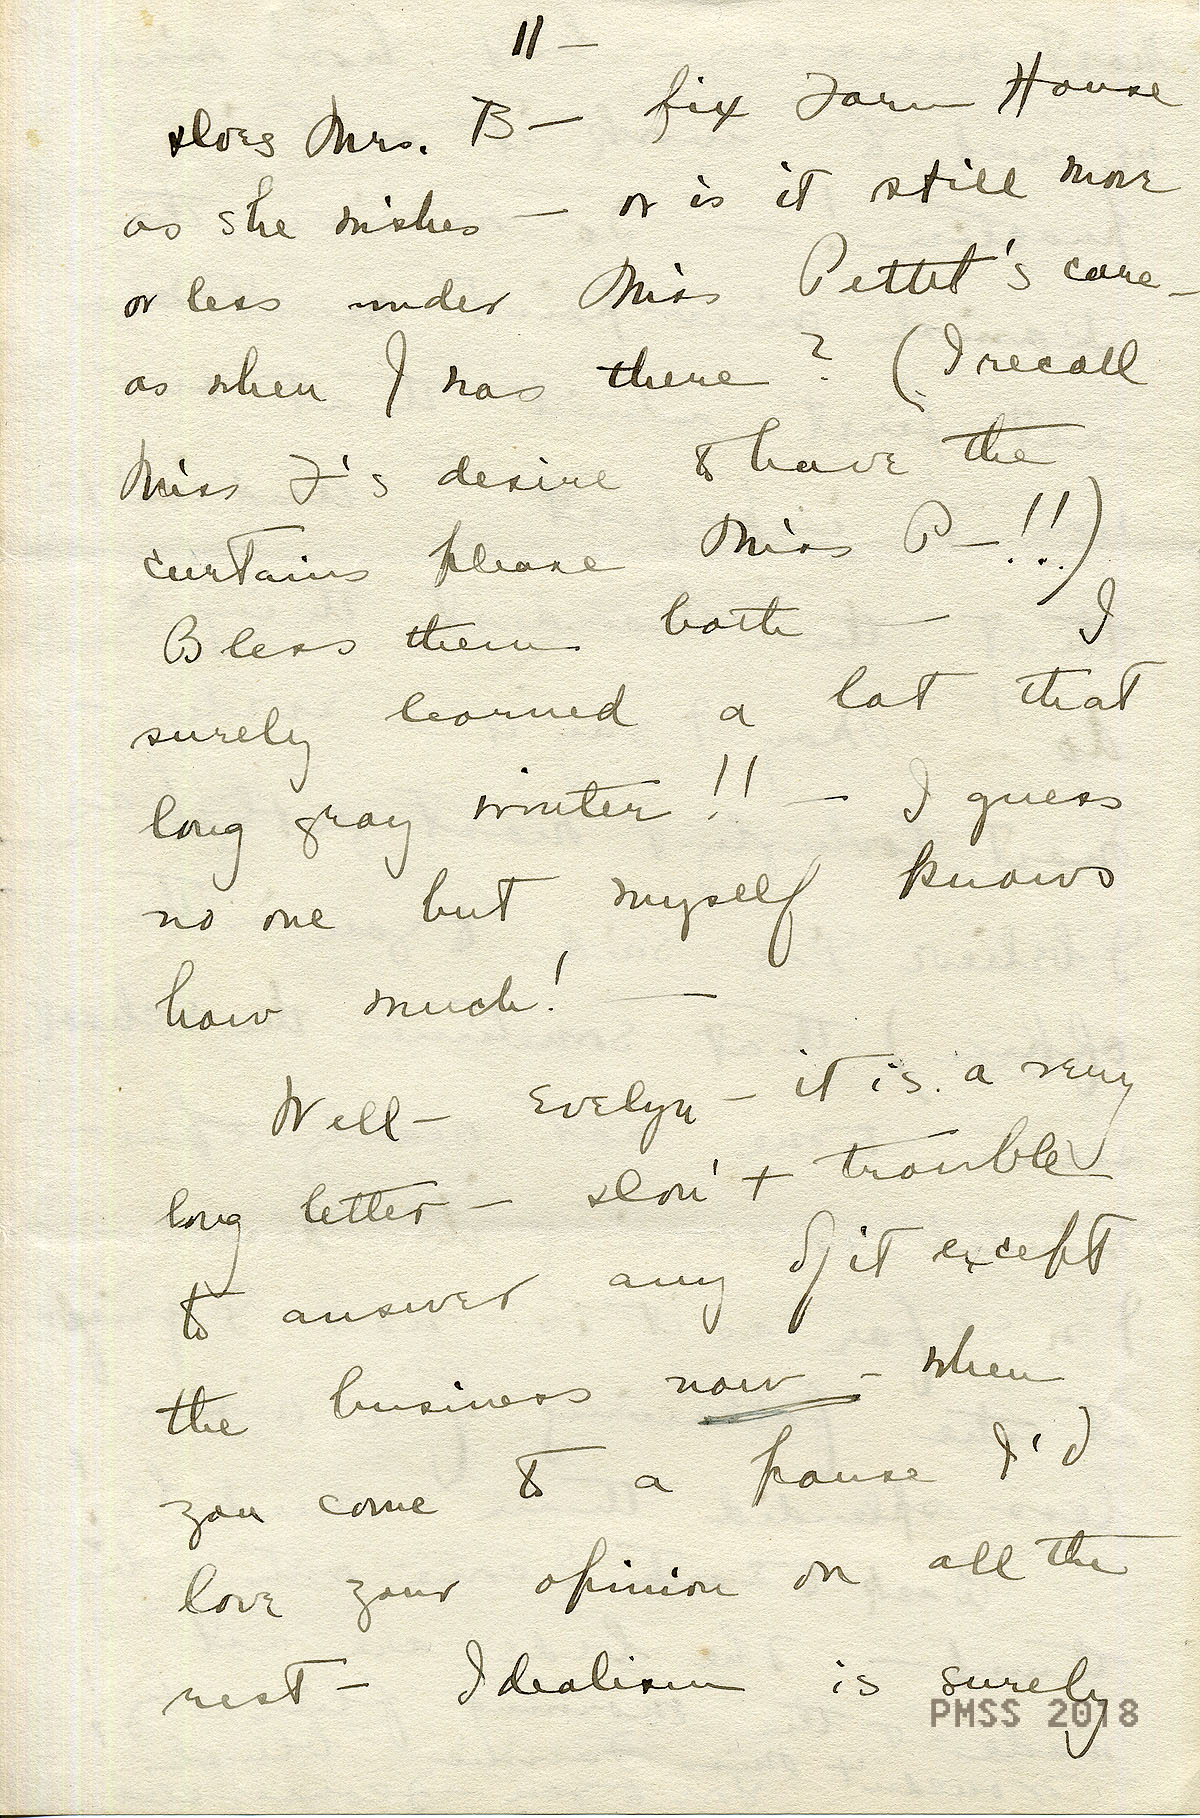 11 —
does Mrs. B — fix Farm House
as she wishes — or is it still more
or less under Miss Pettit's care —
as when I was there? (I recall
Miss F's desire to have the
curtains please Miss P—!!)
Bless them both — I
surely learned a lot that
long gray winter!! — I guess
no one but myself knows
how much! —
Well — Evelyn — it is a very
long letter — don't trouble
to answer any of it except
the business now — when
you come to a pause I'd
love your opinion on all the
rest — Idealism is surely
PMSS 2018